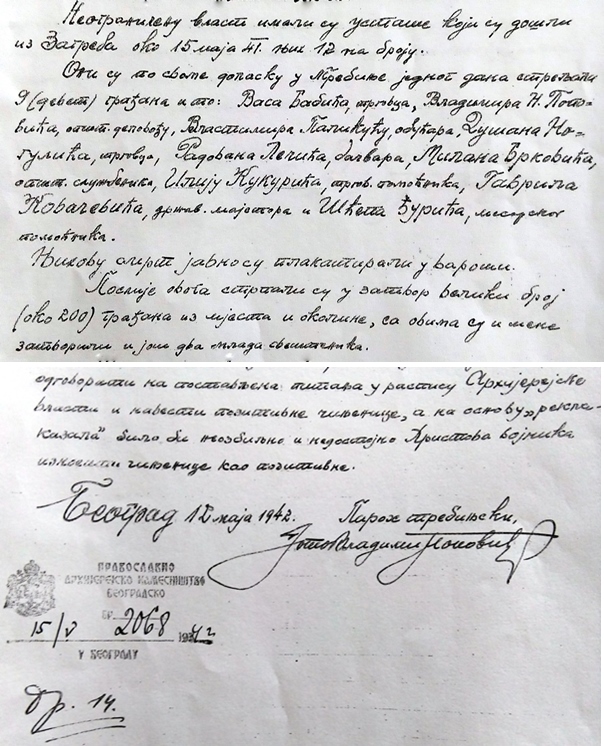 Неограничену власт имали су усташе који су дошли
из Загреба око 15 маја 41. њих 12 на броју.
Они су по своме доласку у Требиње једног дана стрељали
9 (девет) грађана и то: Васа Бабића, трговца, Владимира Н. Попо-
вића, општ. деловођу, Властимира Паликућу, обућара, Душана Но-
гулића, трговца, Радована Лечића, бачвара, Милана Брковића,
општ. службеника, Илију Кукурића, тргов. помоћника, Гаврила
Ковачевића, држав. мајстора и Шћепа Ђурића, месарског
помоћника.
Њихову смрт јавно су плакатирали у вароши.
Послије овога стрпали су у затвор велики број
(око 200) грађана из мјеста и околине, са овима су и мене
затворили и још два млада свештеника.
одговорити на постављена питања у распису Архијерејске
власти и навести позитивне чињенице, а на основу „рекла-
казала" било би неозбиљно и недостојно Христова војника
износити чињенице као позитивне.
Београд 12 маја 1942.
Парох требињски,
Владимир Поповић
ПРАВОСЛАВНО
АРХИЈЕРЕЈСКО НАМЕСНИШТВО
БЕОГРАДСКО
БР. 2068
15/V 1942 г
У БЕОГРАДУ
бр. 14.